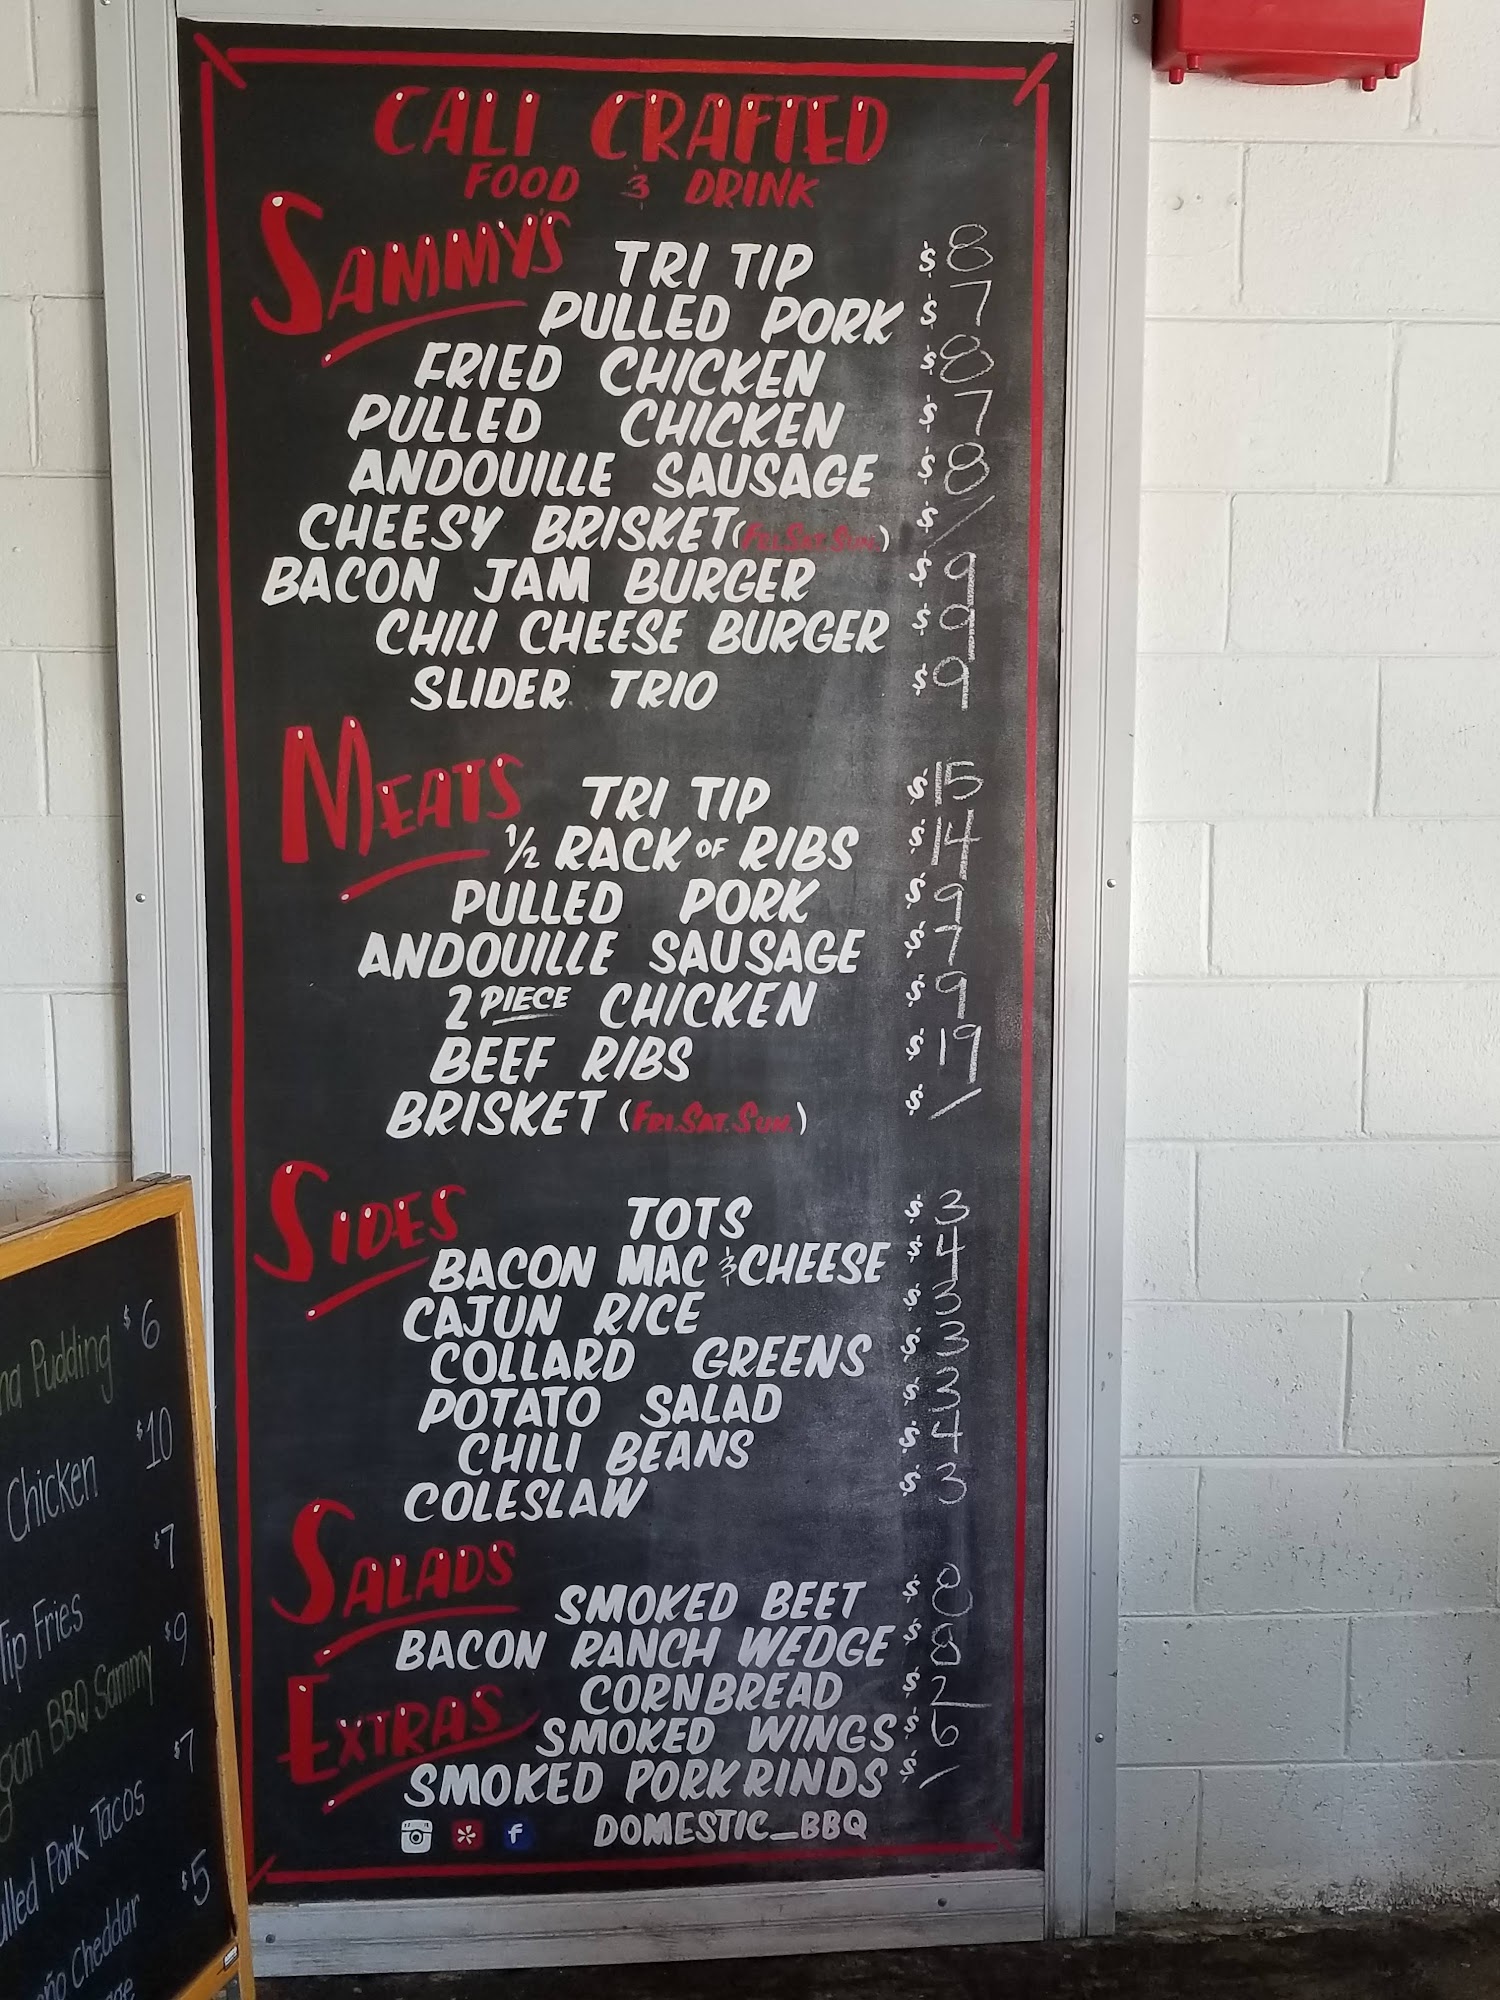 CALI CRAFTED
FOOD & DRINK
SAMMY'S
TRI TIP $ 8
PULLED PORK $ 7
FRIED CHICKEN $ 8
PULLED CHICKEN $ 7
ANDOUILLE SAUSAGE $ 8
CHEESY BRISKET (FRI.SAT.SUN.) $ /
BACON JAM BURGER $ 9
CHILI CHEESE BURGER $ 9
SLIDER TRIO $ 9
MEATS
TRI TIP $ 15
½ RACK OF RIBS $ 14
PULLED PORK $ 9
ANDOUILLE SAUSAGE $ 7
2 PIECE CHICKEN $ 9
BEEF RIBS $ 19
BRISKET (FRI.SAT.SUN.) $ /
SIDES
TOTS $ 3
BACON MAC & CHEESE $ 4
CAJUN RICE $ 3
COLLARD GREENS $ 3
POTATO SALAD $ 3
CHILI BEANS $ 4
COLESLAW $ 3
SALADS
SMOKED BEET $ 8
BACON RANCH WEDGE $ 8
EXTRAS
CORNBREAD $ 2
SMOKED WINGS $ 6
SMOKED PORK RINDS $ /
DOMESTIC_BBQ
Pudding $6
Chicken $10
Tip Fries $7
BBQ Sammy $9
Pork Tacos $7
Cheddar $5